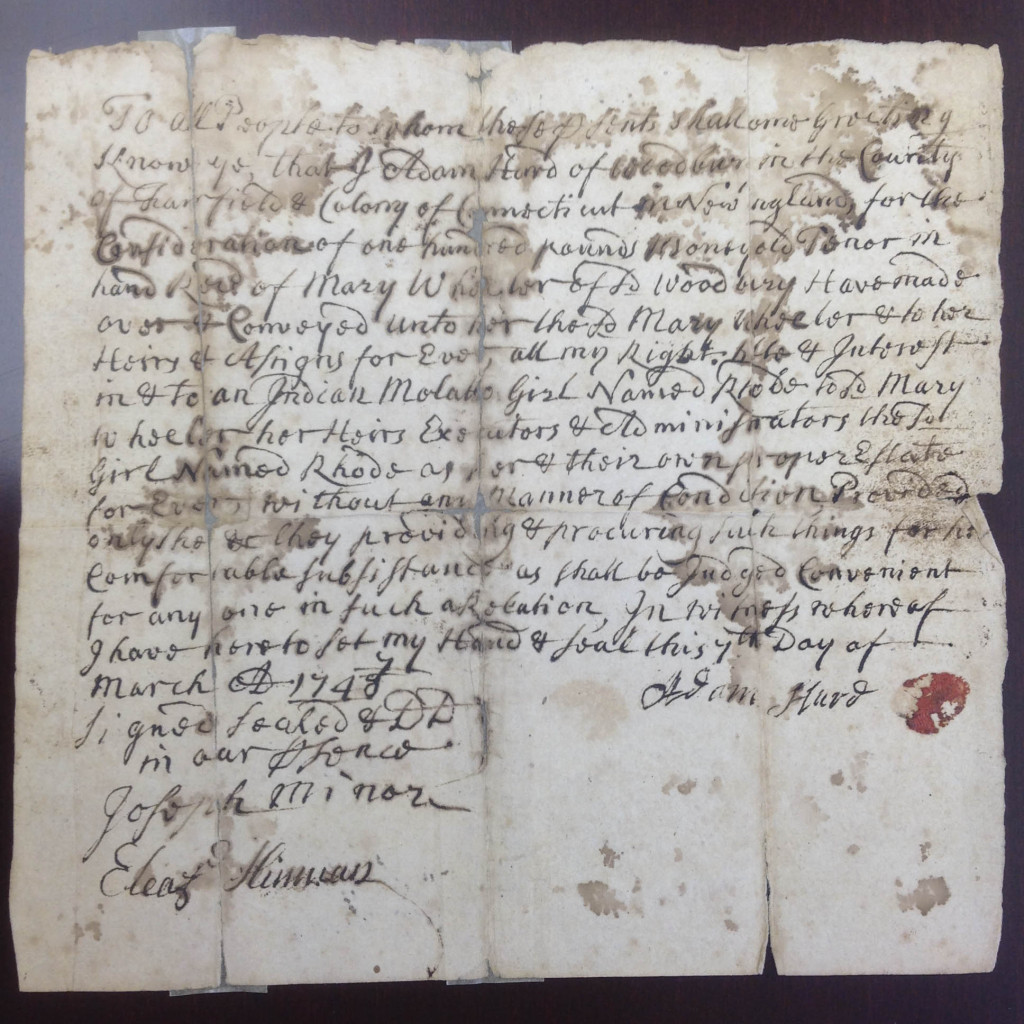 To all People to whom these psents shall come Greeting
Know ye, that I Adam Hurd of Woodbury in the County
of Fairfield & Colony of Connecticut in New England, for the
Consideration of one hundred pounds Money old Tenor in
hand Recd of Mary Wheeler of sd Woodbury Have made
over & Conveyed unto her the sd Mary Wheeler & to her
Heirs & Assigns for Ever, all my Right, title & Interest
in & to an Indian Molatto Girl Named Rhode to sd Mary
Wheeler her Heirs Executors & Administrators the sd
Girl Named Rhode as her & their own proper Estate
for Ever, without any Manner of Condition Provided
only she & they providing & procuring such things for her
Comfortable subsistance as shall be Judged Convenient
for any one in such a Relation, In witness whereof
I have hereto set my Hand & seal this 7th Day of
March AD 174 7/8 Adam Hurd
Signed sealed & DD
in our psence
Joseph Minor
Eleazr Hinman